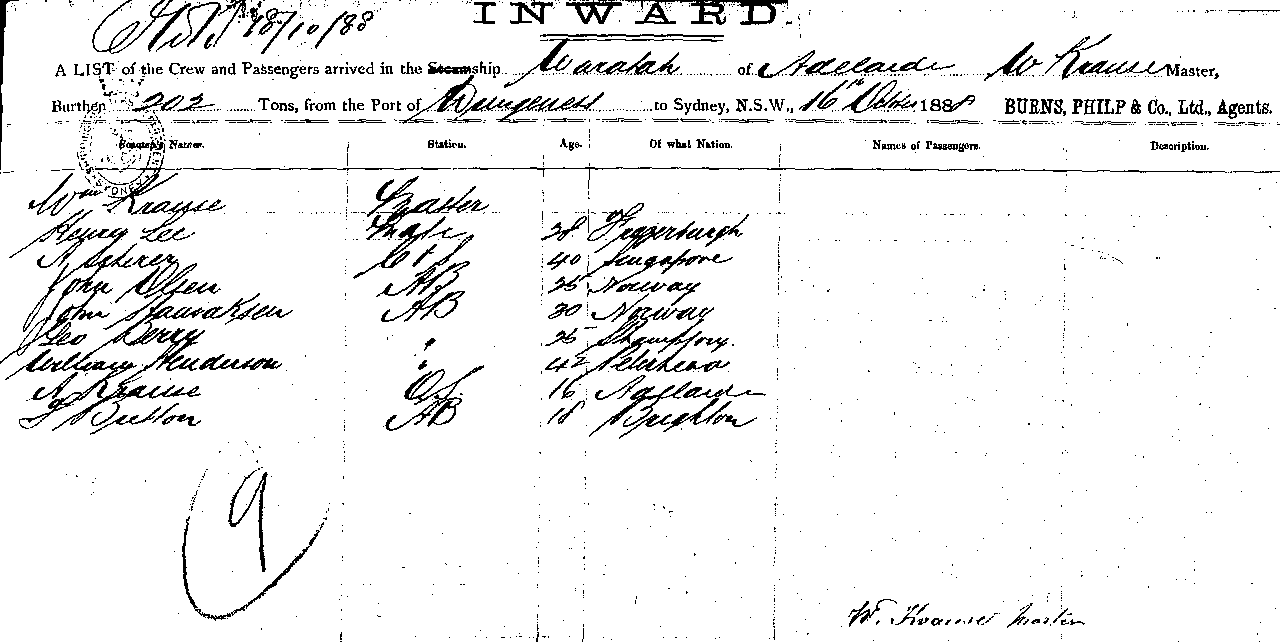 18/10/88
INWARD.
A LIST of the Crew and Passengers arrived in the Steamship Waratah of Adelaide W Krause Master,
Burthen 202 Tons, from the Port of Dungeness to Sydney, N.S.W., 16th October 1888 BURNS, PHILP & Co., Ltd., Agents.
Names. Station. Age. Of what Nation. Names of Passengers. Description.
Wm Krause Master
Henry Lee Mate 28
A Scherer 40 Singapore
John Olsen AB 25 Norway
John AB 30 Norway
Geo Berry " 25
William Henderson " 42
A Krause OS 16 Adelaide
Britton AB 18 Brighton
9
W. Krause Master